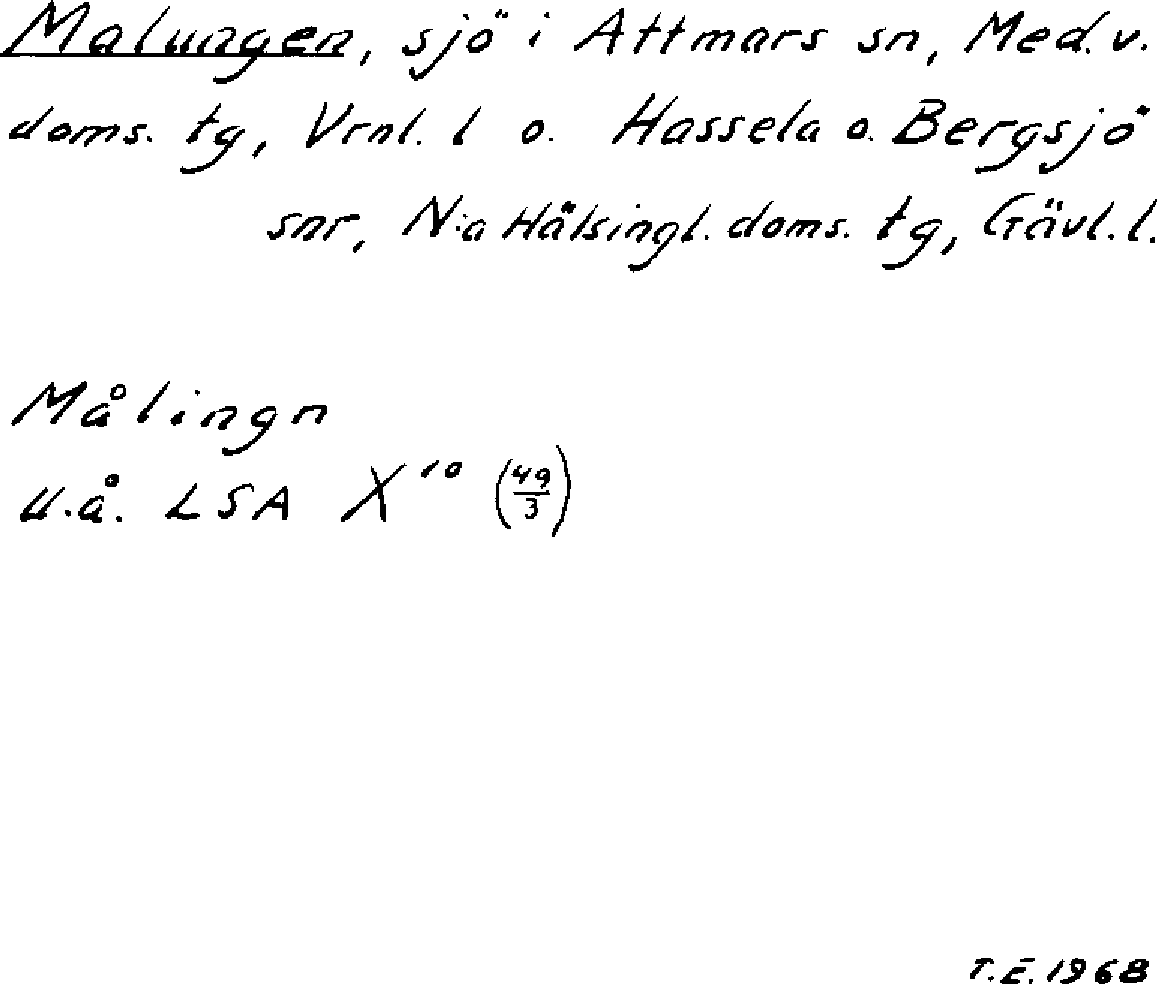 Malungen, sjö i Attmars sn, Med. v.
doms. tg, Vrnl. l o. Hassela o. Bergsjö
snr, N:a Hälsingl. doms. tg, Gävl. l.
Målingn
u.å. LSA X¹⁰ (49/3)
T.E. 1968